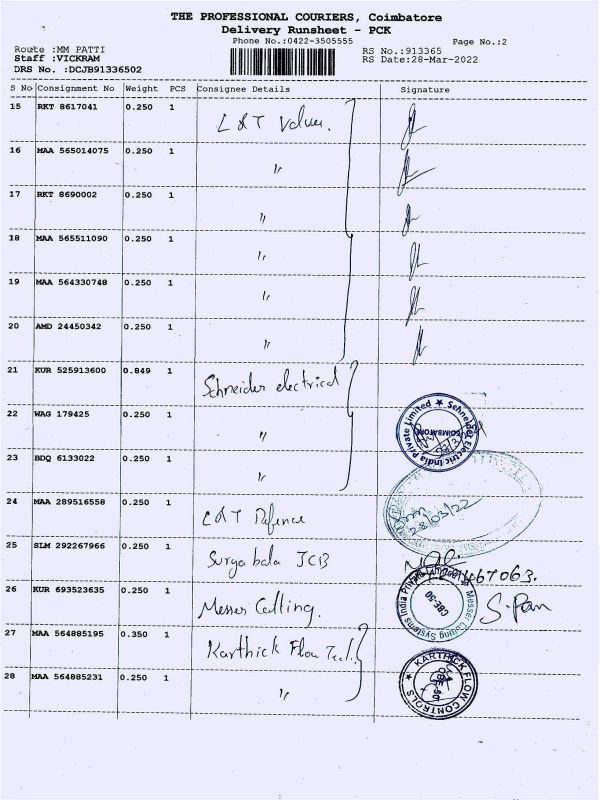 THE PROFESSIONAL COURIERS, Coimbatore
Delivery Runsheet - PCK
Phone No.:0422-3505555 Page No.:2
Route :MM PATTI RS No.:913365
Staff :VICKRAM RS Date:28-Mar-2022
DRS No. :DCJB91336502
S No Consignment No Weight PCS Consignee Details Signature
15 RKT 8617041 0.250 1 L&T Valves.
16 MAA 565014075 0.250 1 "
17 RKT 8690002 0.250 1 "
18 MAA 565511090 0.250 1 "
19 MAA 564330748 0.250 1 "
20 AMD 24450342 0.250 1 "
21 KUR 525913600 0.849 1 Schneider electrical
Schneider Electric India Private Limited ★
COIMBATORE
22 WAG 179425 0.250 1 "
23 BDQ 6133022 0.250 1 "
24 MAA 289516558 0.250 1 L&T Defence
28/03/22
25 SLM 292267966 0.250 1 Surya bala JCB
467063.
26 KUR 693523635 0.250 1 Messer Cutting.
Messer Cutting Systems India Private Limited
CBE-50
S. Pan
27 MAA 564885195 0.350 1 Karthick Flow Tech.
28 MAA 564885231 0.250 1 "
★ KARTHICK FLOW CONTROLS
CBE-50